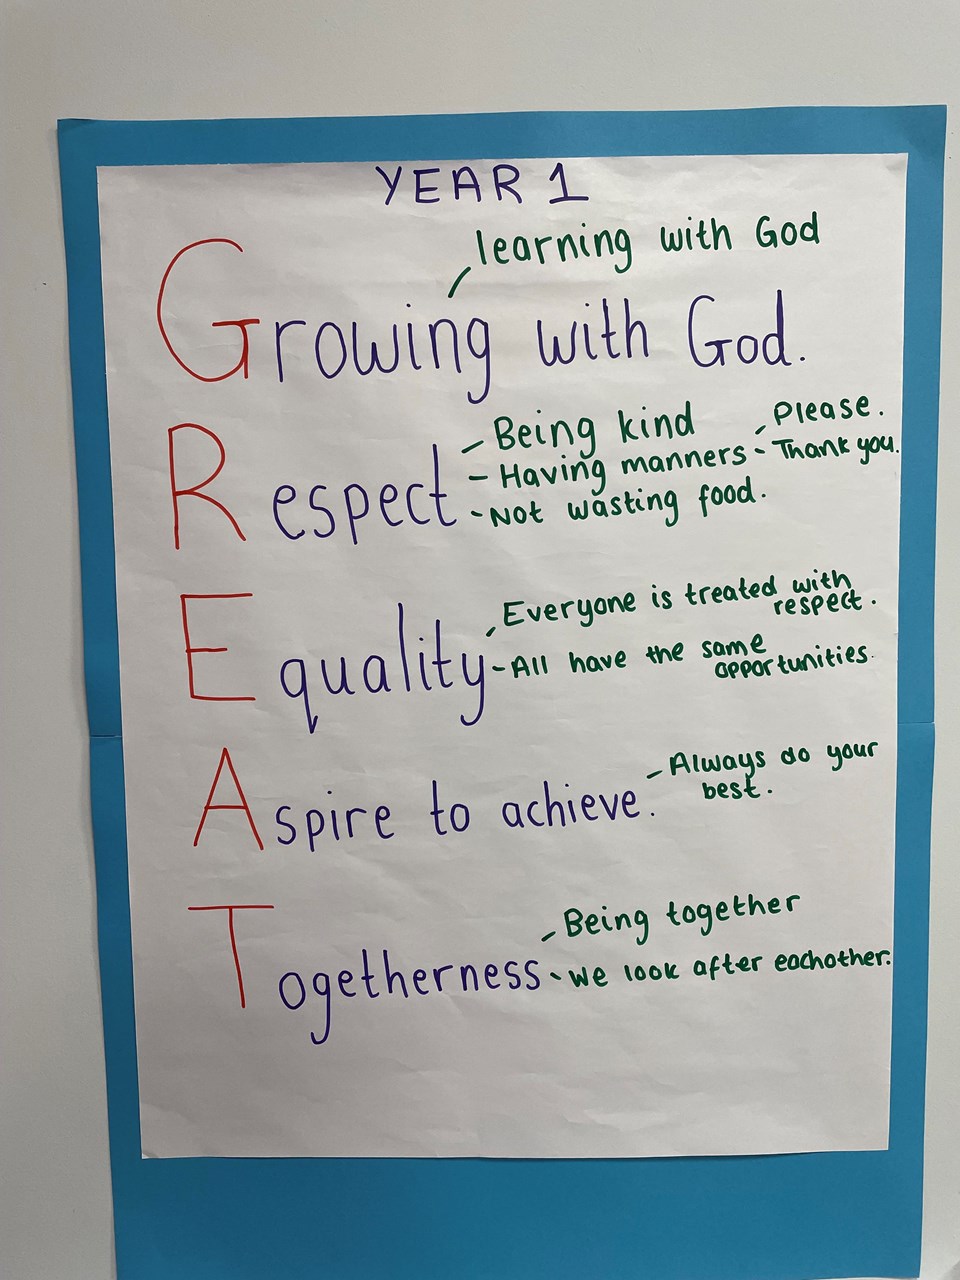 YEAR 1
learning with God
Growing with God.
Respect
- Being kind
- Having manners
- Please.
- Thank you.
- Not wasting food.
Equality
- Everyone is treated with
respect.
- All have the same
opportunities.
Aspire to achieve.
- Always do your
best.
Togetherness
- Being together
- We look after eachother.